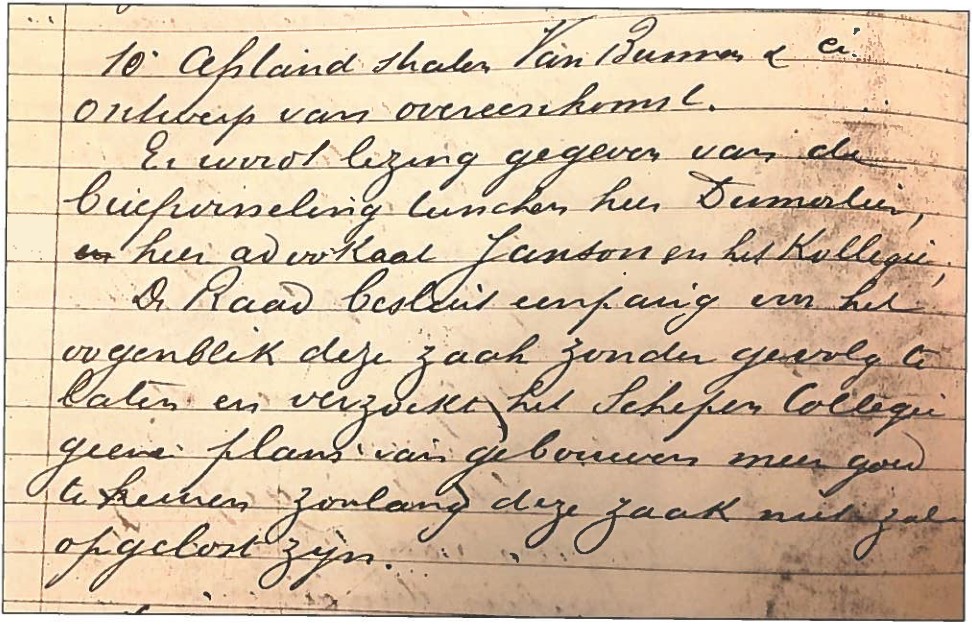 10° Afstand straten Van Bunnen & Cie.
ontwerp van overeenkomst.
Er wordt lezing gegeven van de
briefwisseling tusschen heer Dumortier,
en heer advokaat Janson en het Kollegie,
De Raad besluit eenparig voor het
oogenblik deze zaak zonder gevolg te
laten en verzoekt het Schepen Collegie
geene plans van gebouwen meer goed
te keuren zoolang deze zaak niet zal
opgelost zijn.